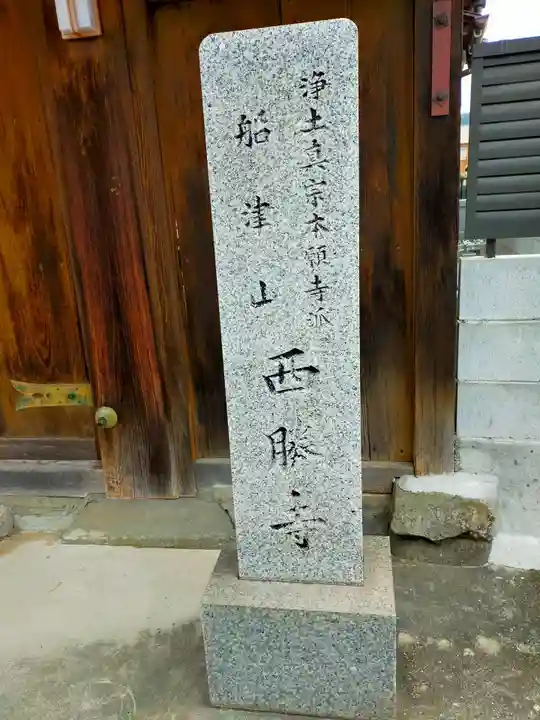 浄土真宗本願寺派
船津山 西勝寺